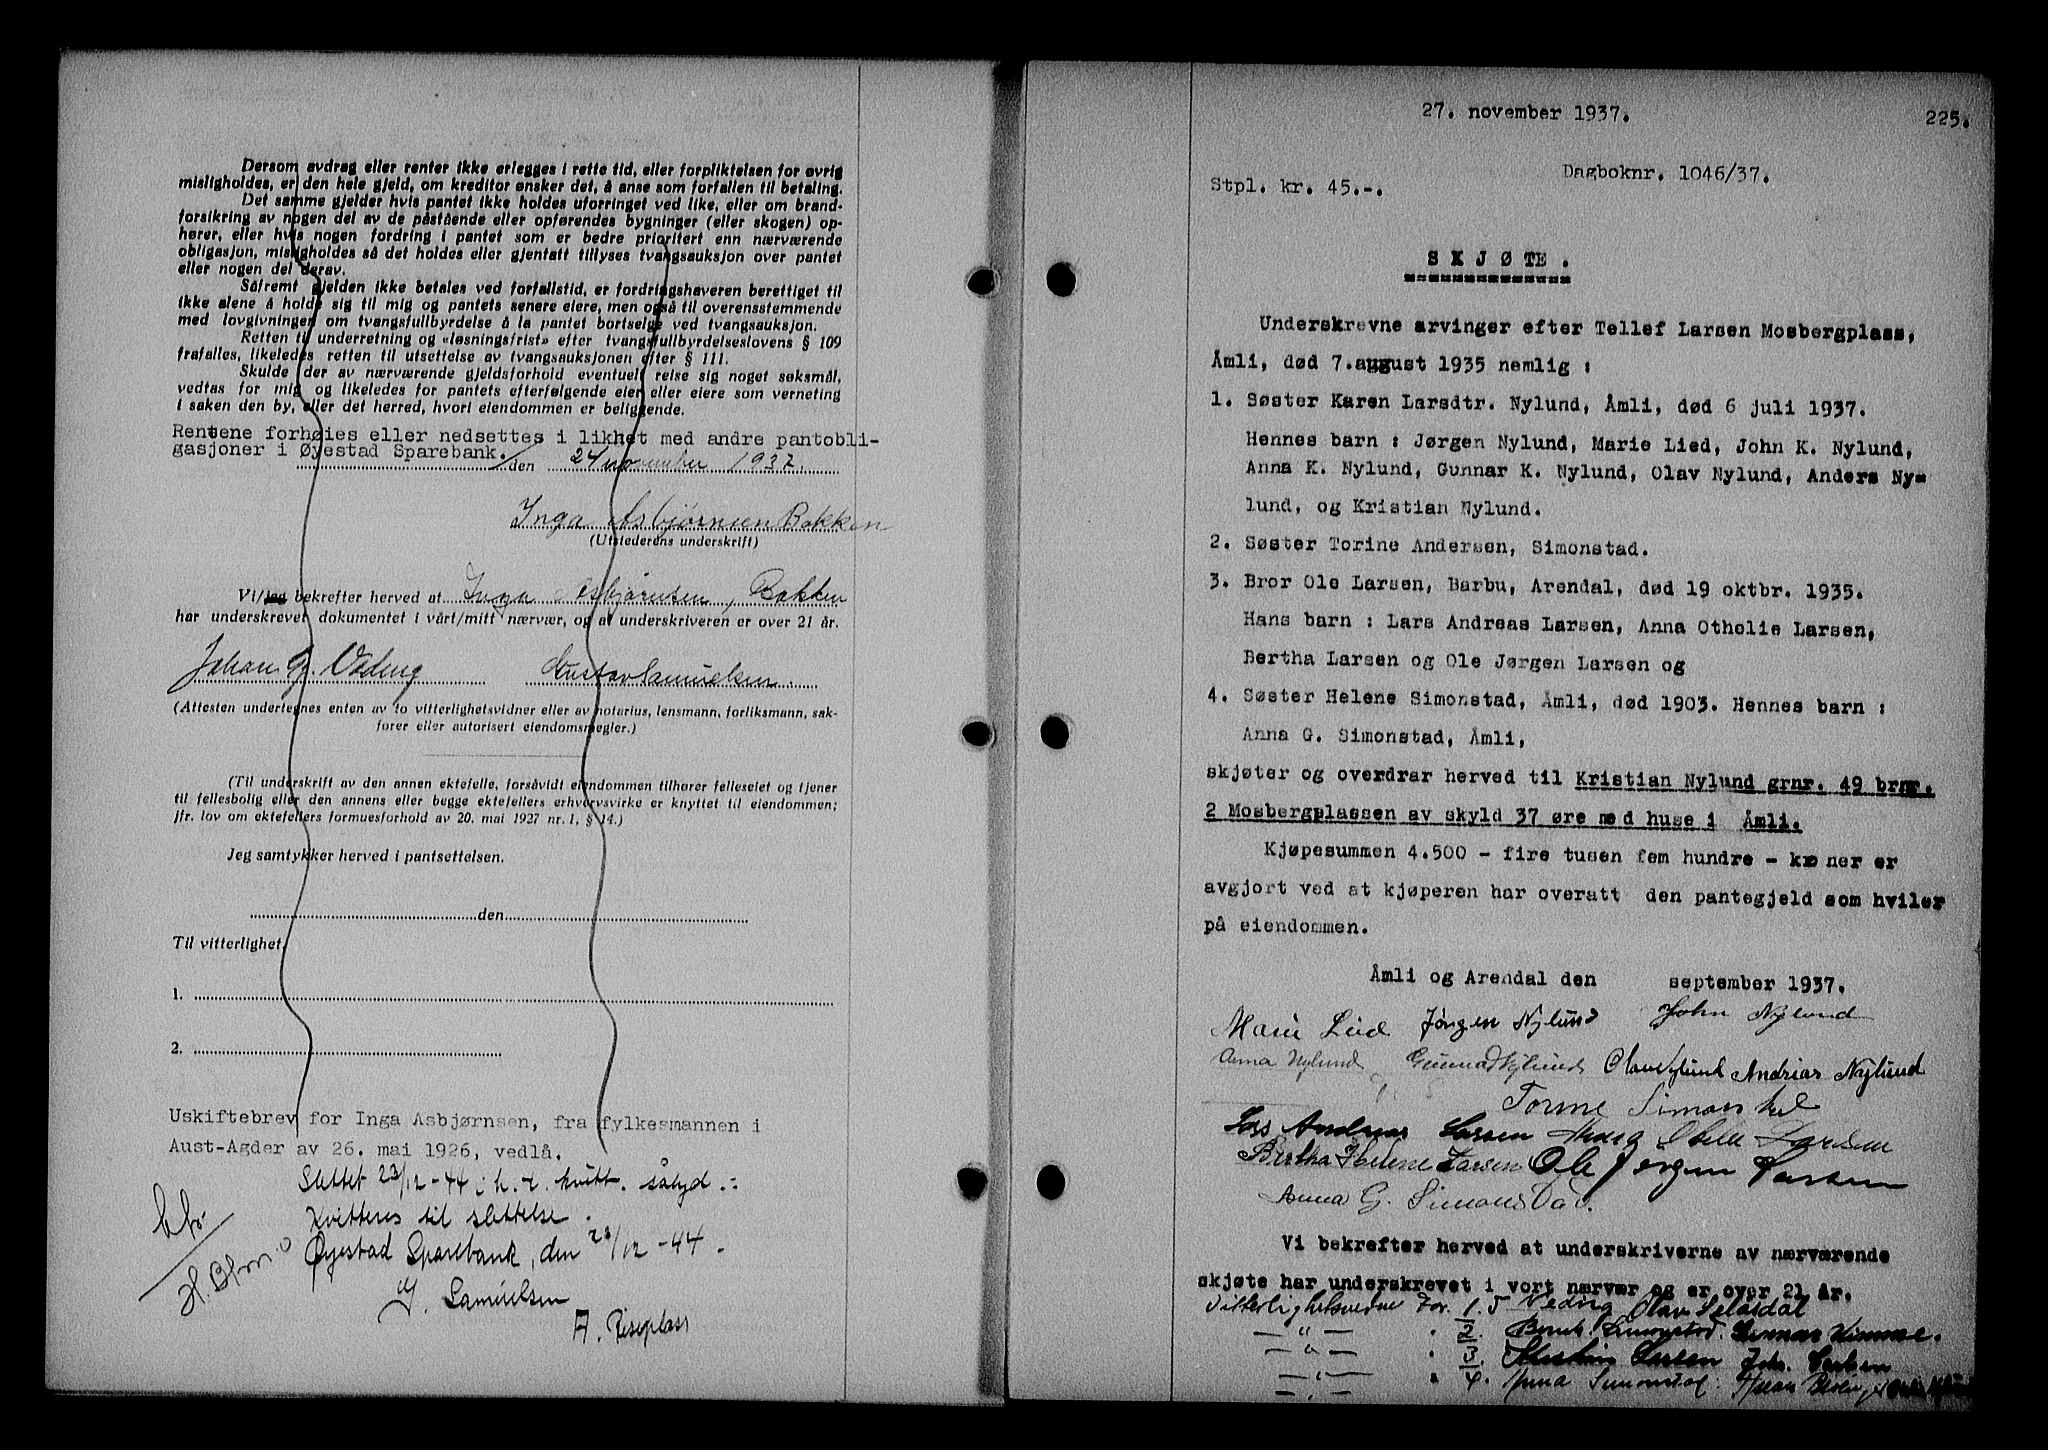 Dersom avdrag eller renter ikke erlegges i rette tid, eller forpliktelsen for øvrig
misligholdes, er den hele gjeld, om kreditor ønsker det, å anse som forfallen til betaling.
Det samme gjelder hvis pantet ikke holdes uforringet ved like, eller om brand-
forsikring av nogen del av de påstående eller opførendes bygninger (eller skogen) op-
hører, eller hvis nogen fordring i pantet som er bedre prioritert enn nærværende
obligasjon, misligholdes så det holdes eller gjentatt tillyses tvangsauksjon over pantet
eller nogen del derav.
Såfremt gjelden ikke betales ved forfallstid, er fordringshaveren berettiget til
ikke alene å holde sig til mig og pantets senere eiere, men også til overensstemmende
med lovgivningen om tvangsfullbyrdelse å la pantet bortselge ved tvangsauksjon.
Retten til underretning og «løsningsfrist» efter tvangsfullbyrdelseslovens § 109
frafalles, likeledes retten til utsettelse av tvangsauksjonen efter § 111.
Skulde der av nærværende gjeldsforhold eventuelt reise sig noget søksmål,
vedtas for mig og likeledes for pantets efterfølgende eier eller eiere som verneting
i saken den by, eller det herred, hvori eiendommen er beliggende.
Rentene forhøies eller nedsettes i likhet med andre pantobli-
gasjoner i Øyestad Sparebank. / den 24 november 1937.
Inga Asbjørnsen Bakken
(Utstederens underskrift)
Vi/jeg bekrefter herved at Inga Asbjørnsen, Bakken
har underskrevet dokumentet i vårt/mitt nærvær, og at underskriveren er over 21 år.
Johan G. Gustav Samuelsen.
(Attesten undertegnes enten av to vitterlighetsvidner eller av notarius, lensmann, forliksmann, sak-
fører eller autorisert eiendomsmegler.)
(Til underskrift av den annen ektefelle, forsåvidt eiendommen tilhører felleseiet og tjener
til fellesbolig eller den annens eller begge ektefellers erhvervsvirke er knyttet til eiendommen;
jfr. lov om ektefellers formuesforhold av 20. mai 1927 nr. 1, § 14.)
Jeg samtykker herved i pantsettelsen.
den
Til vitterlighet.
1.
2.
Uskiftebrev for Inga Asbjørnsen, fra fylkesmannen i
Aust-Agder av 26. mai 1926, vedlå.
Slettet 23/12-44 i h. t. kvitt. sålyd.:
Kvitteres til slettelse.
Øyestad Sparebank, den 23/12-44.
G. Samuelsen
A. Riseplass
27. november 1937.
225.
Dagboknr. 1046/37.
Stpl. kr. 45.-.
SKJØTE.
Underskrevne arvinger efter Tellef Larsen Mosbergplass,
Åmli, død 7.august 1935 nemlig :
1. Søster Karen Larsdtr. Nylund, Åmli, død 6 juli 1937.
Hennes barn : Jørgen Nylund, Marie Lied, John K. Nylund,
Anna K. Nylund, Gunnar K. Nylund, Olav Nylund, Anders Ny-
lund, og Kristian Nylund.
2. Søster Torine Andersen, Simonstad.
3. Bror Ole Larsen, Barbu, Arendal, død 19 oktbr. 1935.
Hans barn : Lars Andreas Larsen, Anna Otholie Larsen,
Bertha Larsen og Ole Jørgen Larsen og
4. Søster Helene Simonstad, Åmli, død 1903. Hennes barn :
Anna G. Simonstad, Åmli,
skjøter og overdrar herved til Kristian Nylund grnr. 49 brnr.
2 Mosbergplassen av skyld 37 øre med huse i Åmli.
Kjøpesummen 4.500 - fire tusen fem hundre - kroner er
avgjort ved at kjøperen har overatt den pantegjeld som hviler
på eiendommen.
Åmli og Arendal den september 1937.
Marie Lied Jørgen Nylund John Nylund
Anna Nylund Gunnar Nylund Olav Nylund Andrias Nylund
Torine Simonstad
Lars Andreas Larsen Anna Otelie Larsen
Bertha Helene Larsen Ole Jørgen Larsen
Anna G. Simonstad.
Vi bekrefter herved at underskriverne av nærværende
skjøte har underskrevet i vort nærvær og er over 21 år.
Vitterlighetsvidne for 1. T Vedvig Olav Selåsdal
— " — " 2. Simonstad. Gunnar Kimme.
— " — " 3. Larsen Joh. Carlsen
— " — " 4. Anna Simonstad.